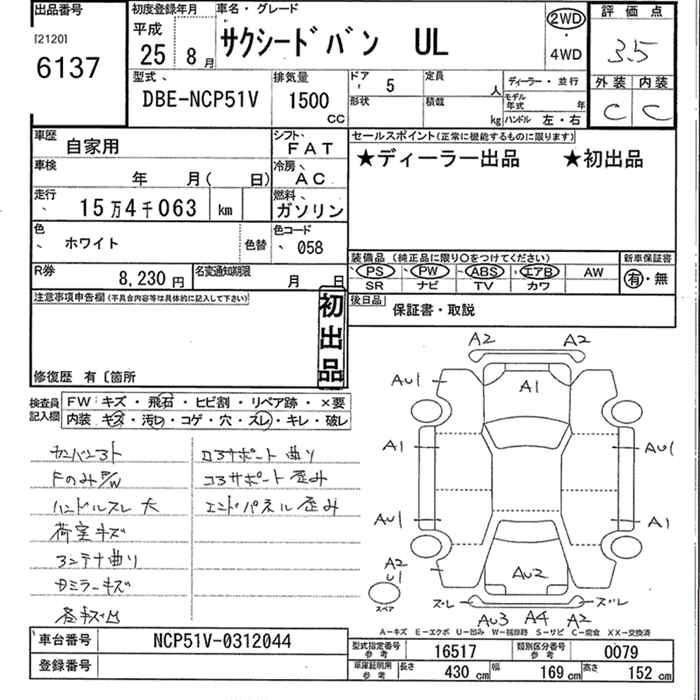 出品番号
[2120]
6137
初度登録年月
平成
25年 8月
車名・グレード
サクシードバン UL
2WD
・
4WD
評価点
3.5
外装 内装
C C
型式
DBE-NCP51V
排気量
1500
CC
ドア 5
形状
定員 人
積載 kg
ディーラー・並行
モデル年式 年
ハンドル 左・右
車歴 自家用
シフト FAT
セールスポイント(正常に機能するものに限ります)
★ディーラー出品 ★初出品
車検 年 月( 日)
冷房 AC
走行 15万4千063 km
燃料 ガソリン
色 ホワイト 色替
色コード 058
装備品 (純正品に限り○をつけてください) 新車保証書
PS PW ABS エアB AW
SR ナビ TV カワ
有・無
R券 8,230円
名変通知期限 月 日
後日品 保証書・取説
注意事項申告欄(不具合内容等は具体的に記入して下さい)
初出品
修復歴 有〔箇所
検査員記入欄
FW: キズ・飛石・ヒビ割・リペア跡・×要
内装 キズ・汚れ・コゲ・穴・スレ・キレ・破レ
カンバン3ト
FのみP/W
ハンドルスレ 大
荷室キズ
アンテナ曲り
Dミラーキズ
ロアサポート曲り
コアサポート歪み
エンドパネル歪み
A2 A2
AU1 A1
A1 AU1
AU1 A1
A2
U1
AU2
スペア
ズレ ズレ
AU3 A4 A2
A-キズ E-エクボ U-凹み W-補修跡 S-サビ C-腐食 XX-交換済
車台番号 NCP51V-0312044
登録番号
型式指定番号 参考 16517
類別区分番号 参考 0079
車庫証明用 参考 長さ 430 cm 幅 169 cm 高さ 152 cm